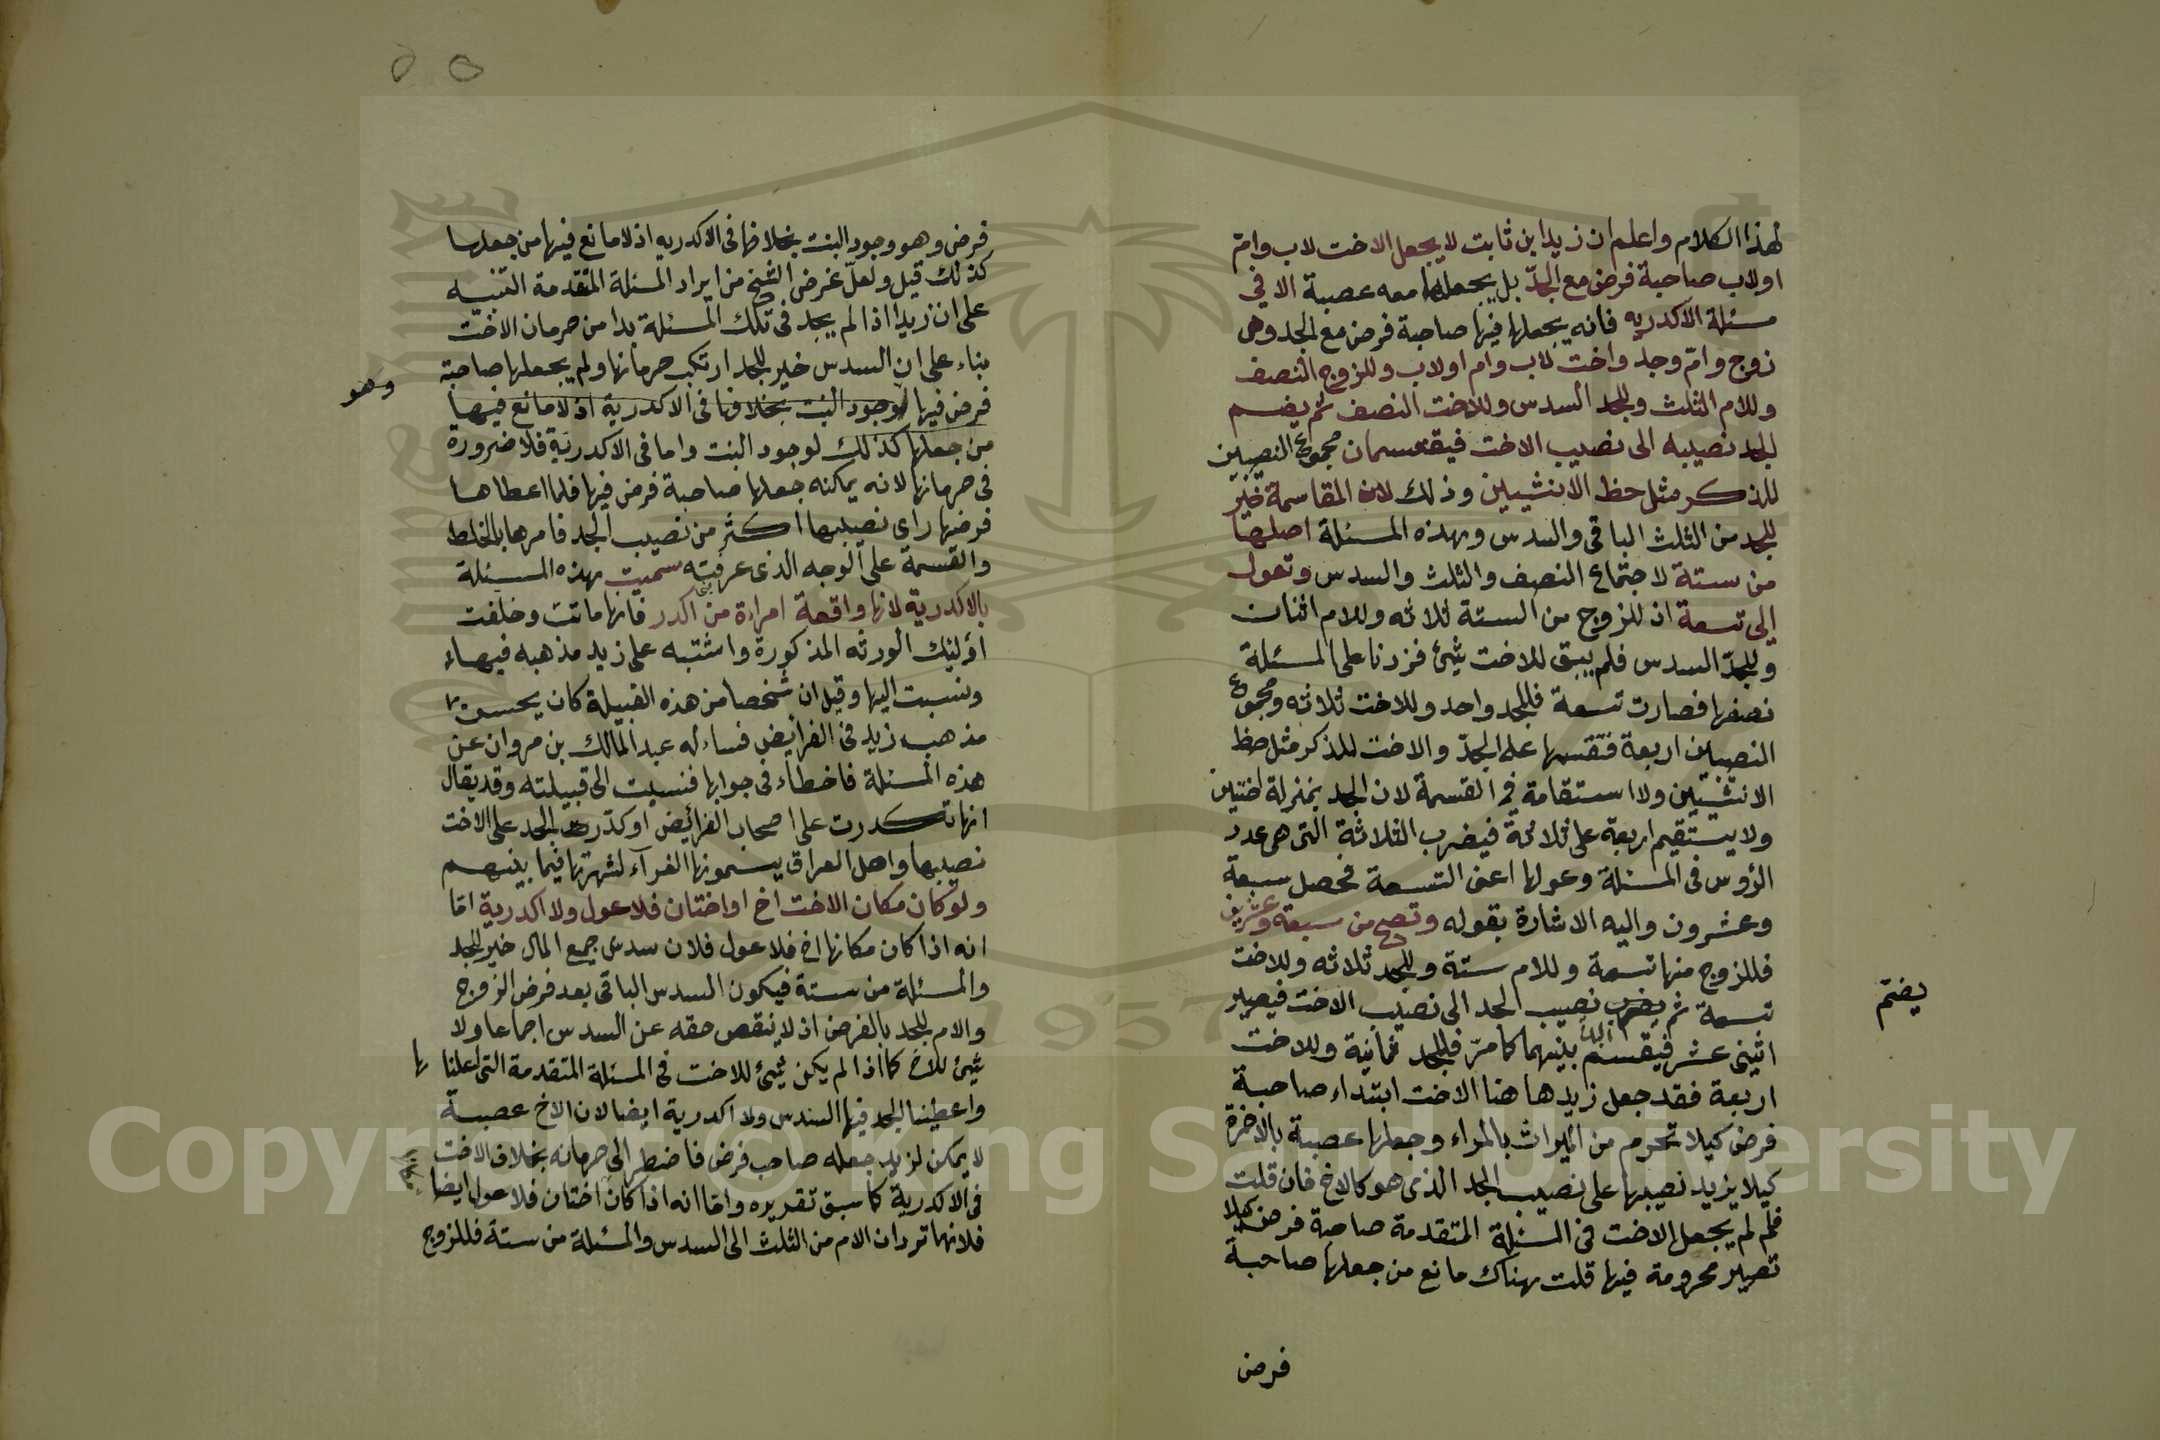 لهذا الكلام واعلم ان زيد ابن ثابت لا يجعل الاخت لاب وام
او لاب صاحبة فرض مع الجد بل يجعلها معه عصبة الا في
مسئلة الاكدريه فانه يجعلها فيها صاحبة فرض مع الجد وهى
زوج وام وجد واخت لاب وام او لاب وللزوج النصف
وللام الثلث وللجد السدس وللاخت النصف ثم يضم
الجد نصيبه الى نصيب الاخت فيقسمان مجموع النصيبين
للذكر مثل حظ الانثيين وذلك لان المقاسمة خير
للجد من الثلث الباقى والسدس وبهذه المسئلة اصلها
من ستة لاجتماع النصف والثلث والسدس وتعول
الى تسعة اذ للزوج من الستة ثلاثه وللام اثنان
وللجد السدس فلم يبق للاخت شئ فزدنا على المسئلة
نصفها فصارت تسعة فللجد واحد وللاخت ثلاثه ومجموع
النصيبين اربعة فتقسمها على الجد والاخت للذكر مثل حظ
الانثيين ولا استقامة في القسمة لان الجد بمنزلة اختين
ولا يستقيم اربعة على ثلاثة فيضرب الثلاثة التى هى عدد
الرؤس فى المسئلة وعولها اعنى التسعة فحصل سبعة
وعشرون واليه الاشارة بقوله وتصح من سبعة وعشرين
فللزوج منها تسعة وللام ستة وللجد ثلاثه وللاخت
تسعة ثم يضرب نصيب الجد الى نصيب الاخت فيصير
يضم
اثنى عشر فيقسم بينهما كما مر فللجد ثمانية وللاخت
اربعة فقد جعل زيد هاهنا الاخت ابتداء صاحبة
فرض كيلا تحرم من الميراث بالمراء وجعلها عصبة بالاخرة
كيلا يزيد نصيبها على نصيب الجد الذى هو كالاخ فان قلت
فلم لم يجعل الاخت فى المسئلة المتقدمة صاحبة فرض كيلا
تصير محرومة فيها قلت بهناك مانع من جعلها صاحبة
فرض
فرض وهو وجود البنت بخلافها فى الاكدريه اذ لا مانع فيها من جعلها
كذلك قيل ولعل غرض الشيخ من ايراد المسئلة المتقدمة التنبيه
على ان زيدا اذا لم يجد فى تلك المسئلة بدا من حرمان الاخت
بناء على ان السدس خير للجد ارتكب حرمانها ولم يجعلها صاحبة
وهو
فرض فيها لوجود البنت بخلافها فى الاكدرية اذ لا مانع فيها
من جعلها كذلك لوجود البنت واما فى الاكدرية فلا ضرورة
فى حرمانها لانه يمكنه جعلها صاحبة فرض فيها فلما اعطاها
فرضها راى نصيبها اكثر من نصيب الجد فامرها بالخلط
والقسمة على الوجه الذى عرفته سميت بهذه المسئلة
بالاكدرية لانها واقعة امراءة من اكدر فانها ماتت وخلفت
اولئك الورثه المذكورة واشتبه على زيد مذهبه فيها
ونسبت اليها وقيل ان شخصا من هذه القبيلة كان يحسن
مذهب زيد فى الفرايض فساءله عبد المالك بن مروان عن
هذه المسئلة فاخطاء فى جوابها فنسبت الى قبيلته وقد يقال
انها تكدرت على اصحاب الفرائض او كدرت الجد على الاخت
نصيبها واهل العراق يسمونها الغرآء لشهرتها فيما بينهم
ولو كان مكان الاخت اخ او اختان فلا عول ولا اكدرية اما
انه اذا كان مكانها اخ فلا عول فلان سدس جميع المال خير للجد
والمسئلة من ستة فيكون السدس الباقى بعد فرض الزوج
والام للجد بالفرض اذ لا ينقص حقه عن السدس اجماعا ولا
شئ للاخ كما اذا لم يكن شئ للاخت فى المسئلة المتقدمة التى اعلنا ها
واعطينا الجد فيها السدس ولا اكدرية ايضا لان الاخ عصبة
لا يمكن لزيد جعله صاحب فرض فاضطر الى حرمانه بخلاف الاخت
فى الاكدرية كما سبق تقديره واما انه اذا كان اختان فلا عول ايضا
فلانهما تردان الام من الثلث الى السدس والمسئلة من ستة فللزوج
Copyright © King Saud University
1957